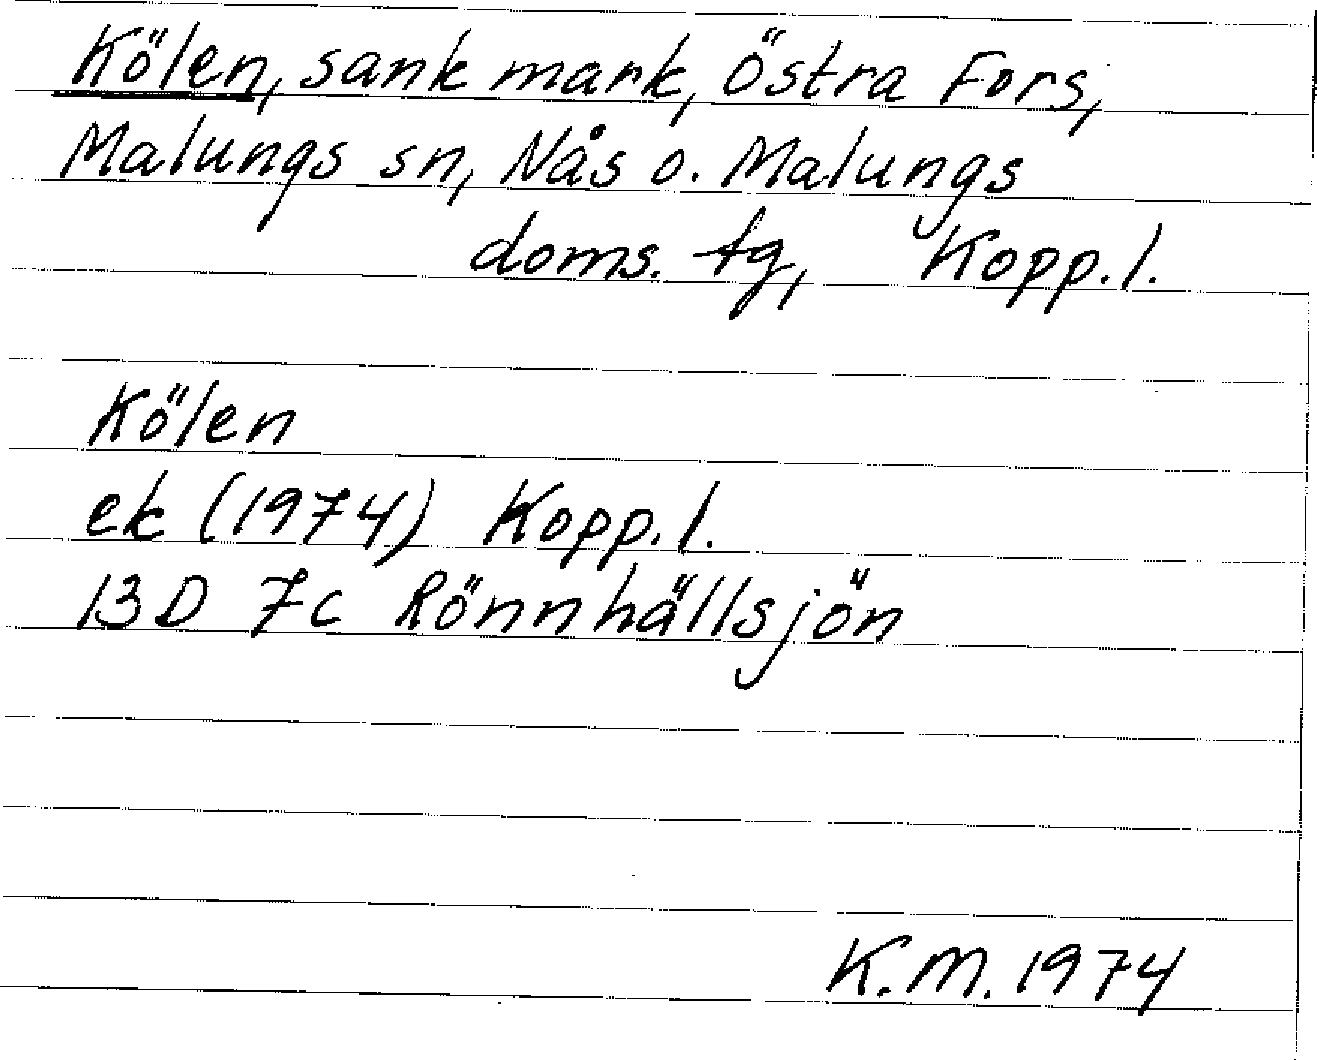 Kölen, sank mark, Östra Fors,
Malungs sn, Nås o. Malungs
doms. tg, Kopp.l.
Kölen
ek (1974) Kopp.l.
13D 7c Rönnhällsjön
K.M. 1974